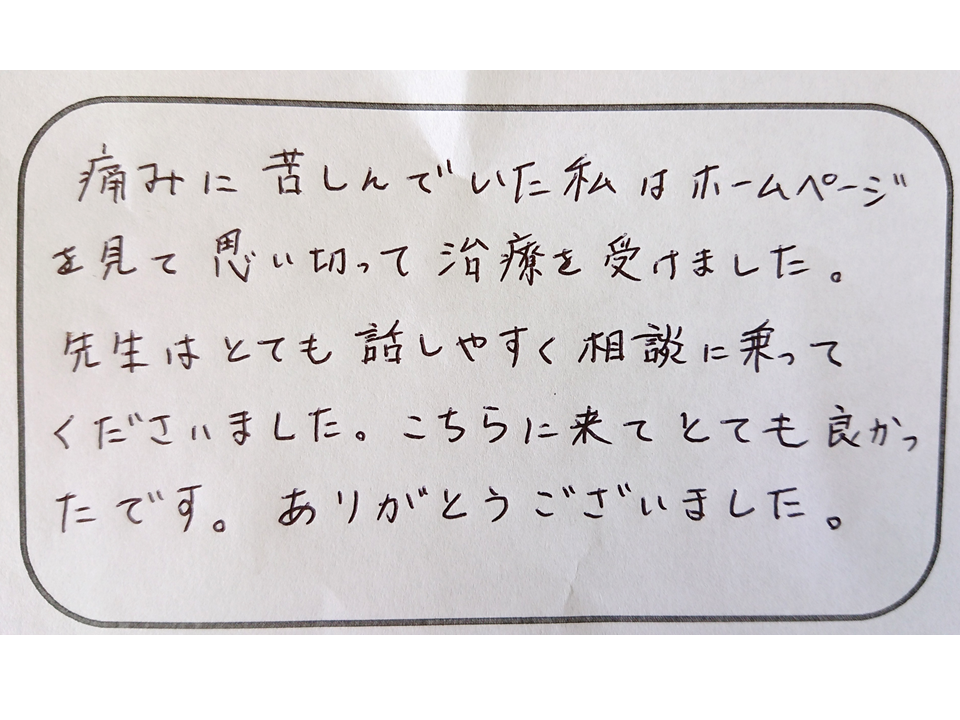 痛みに苦しんでいた私はホームページ
を見て思い切って治療を受けました。
先生はとても話しやすく相談に乗って
くださいました。こちらに来てとても良かっ
たです。ありがとうございました。